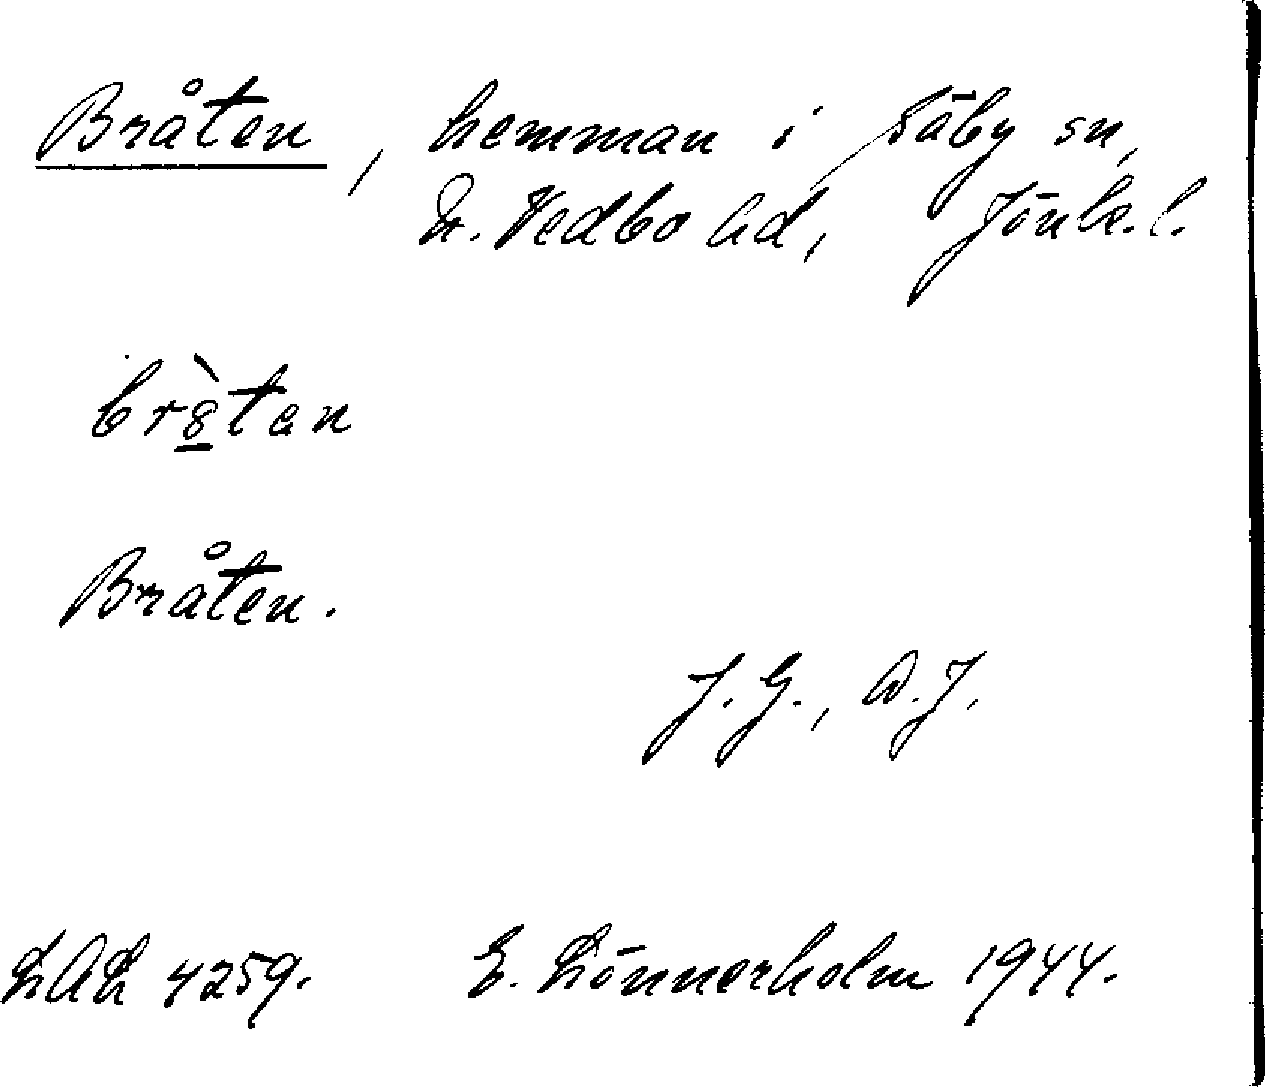 Bråten, hemman i Säby sn,
N. Vedbo hd, Jönk. l.
br8̱̀tən
Bråten.
J. G., A. J.
LAL 4259. E. Lönnerholm 1944.